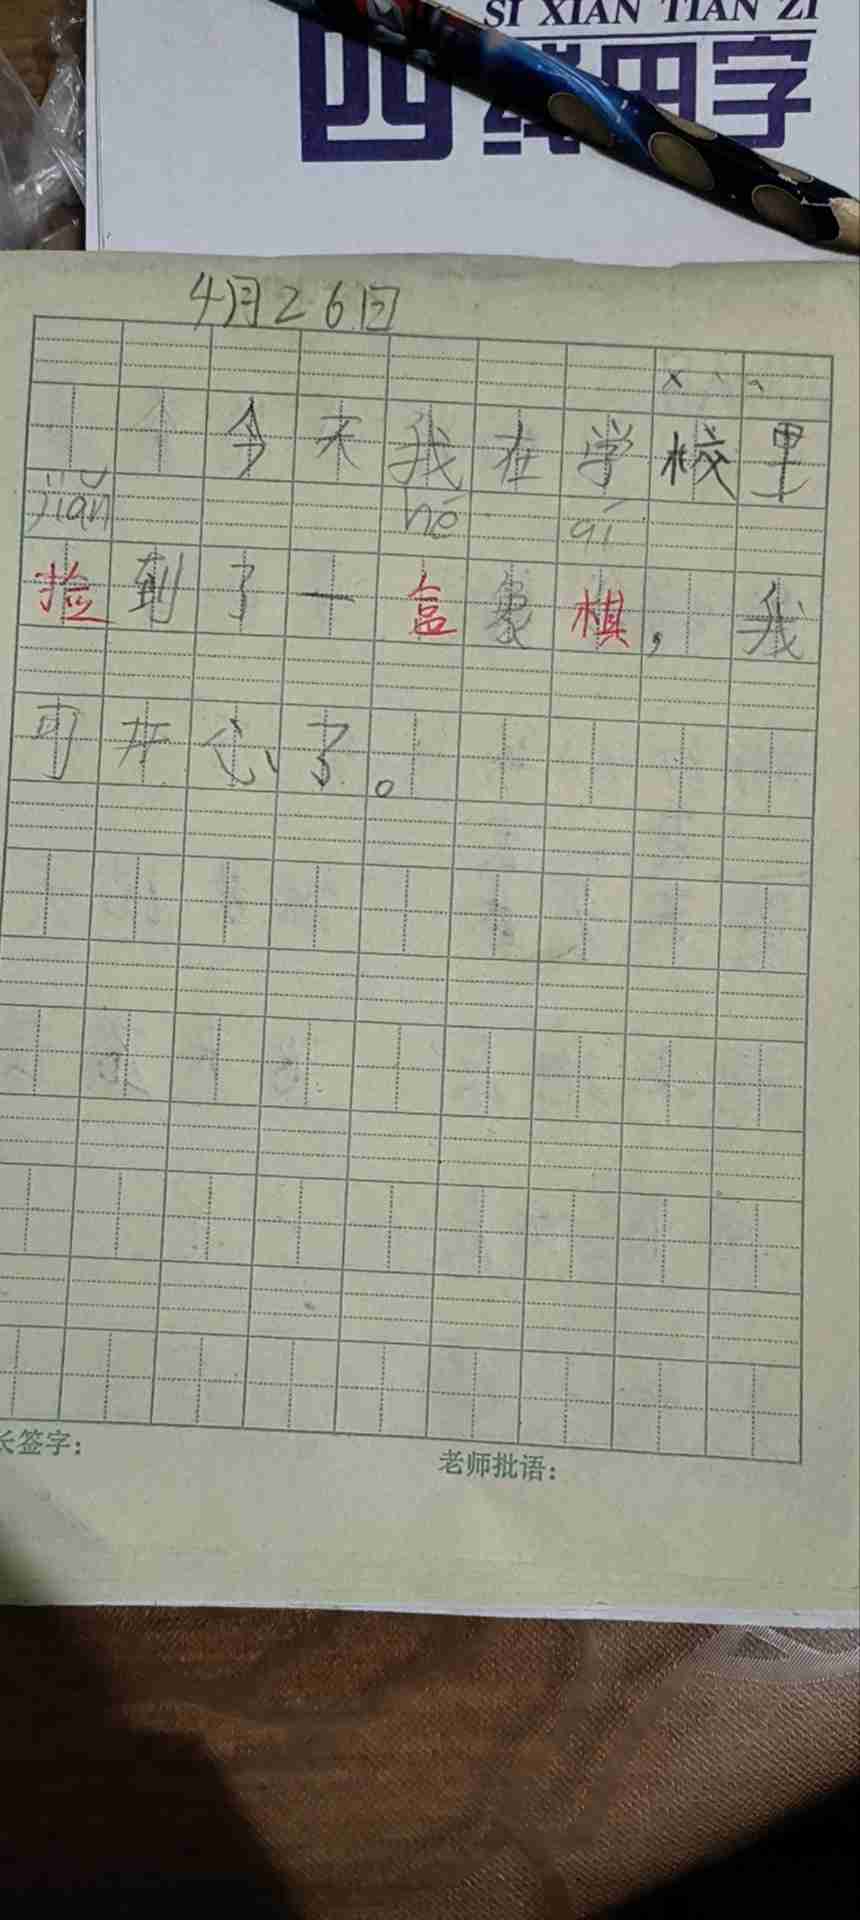 SI XIAN TIAN ZI
四线田字
4月26日
今天我在学校里
jiǎn hé qí
捡到了一盒象棋，我
可开心了。
长签字：
老师批语：